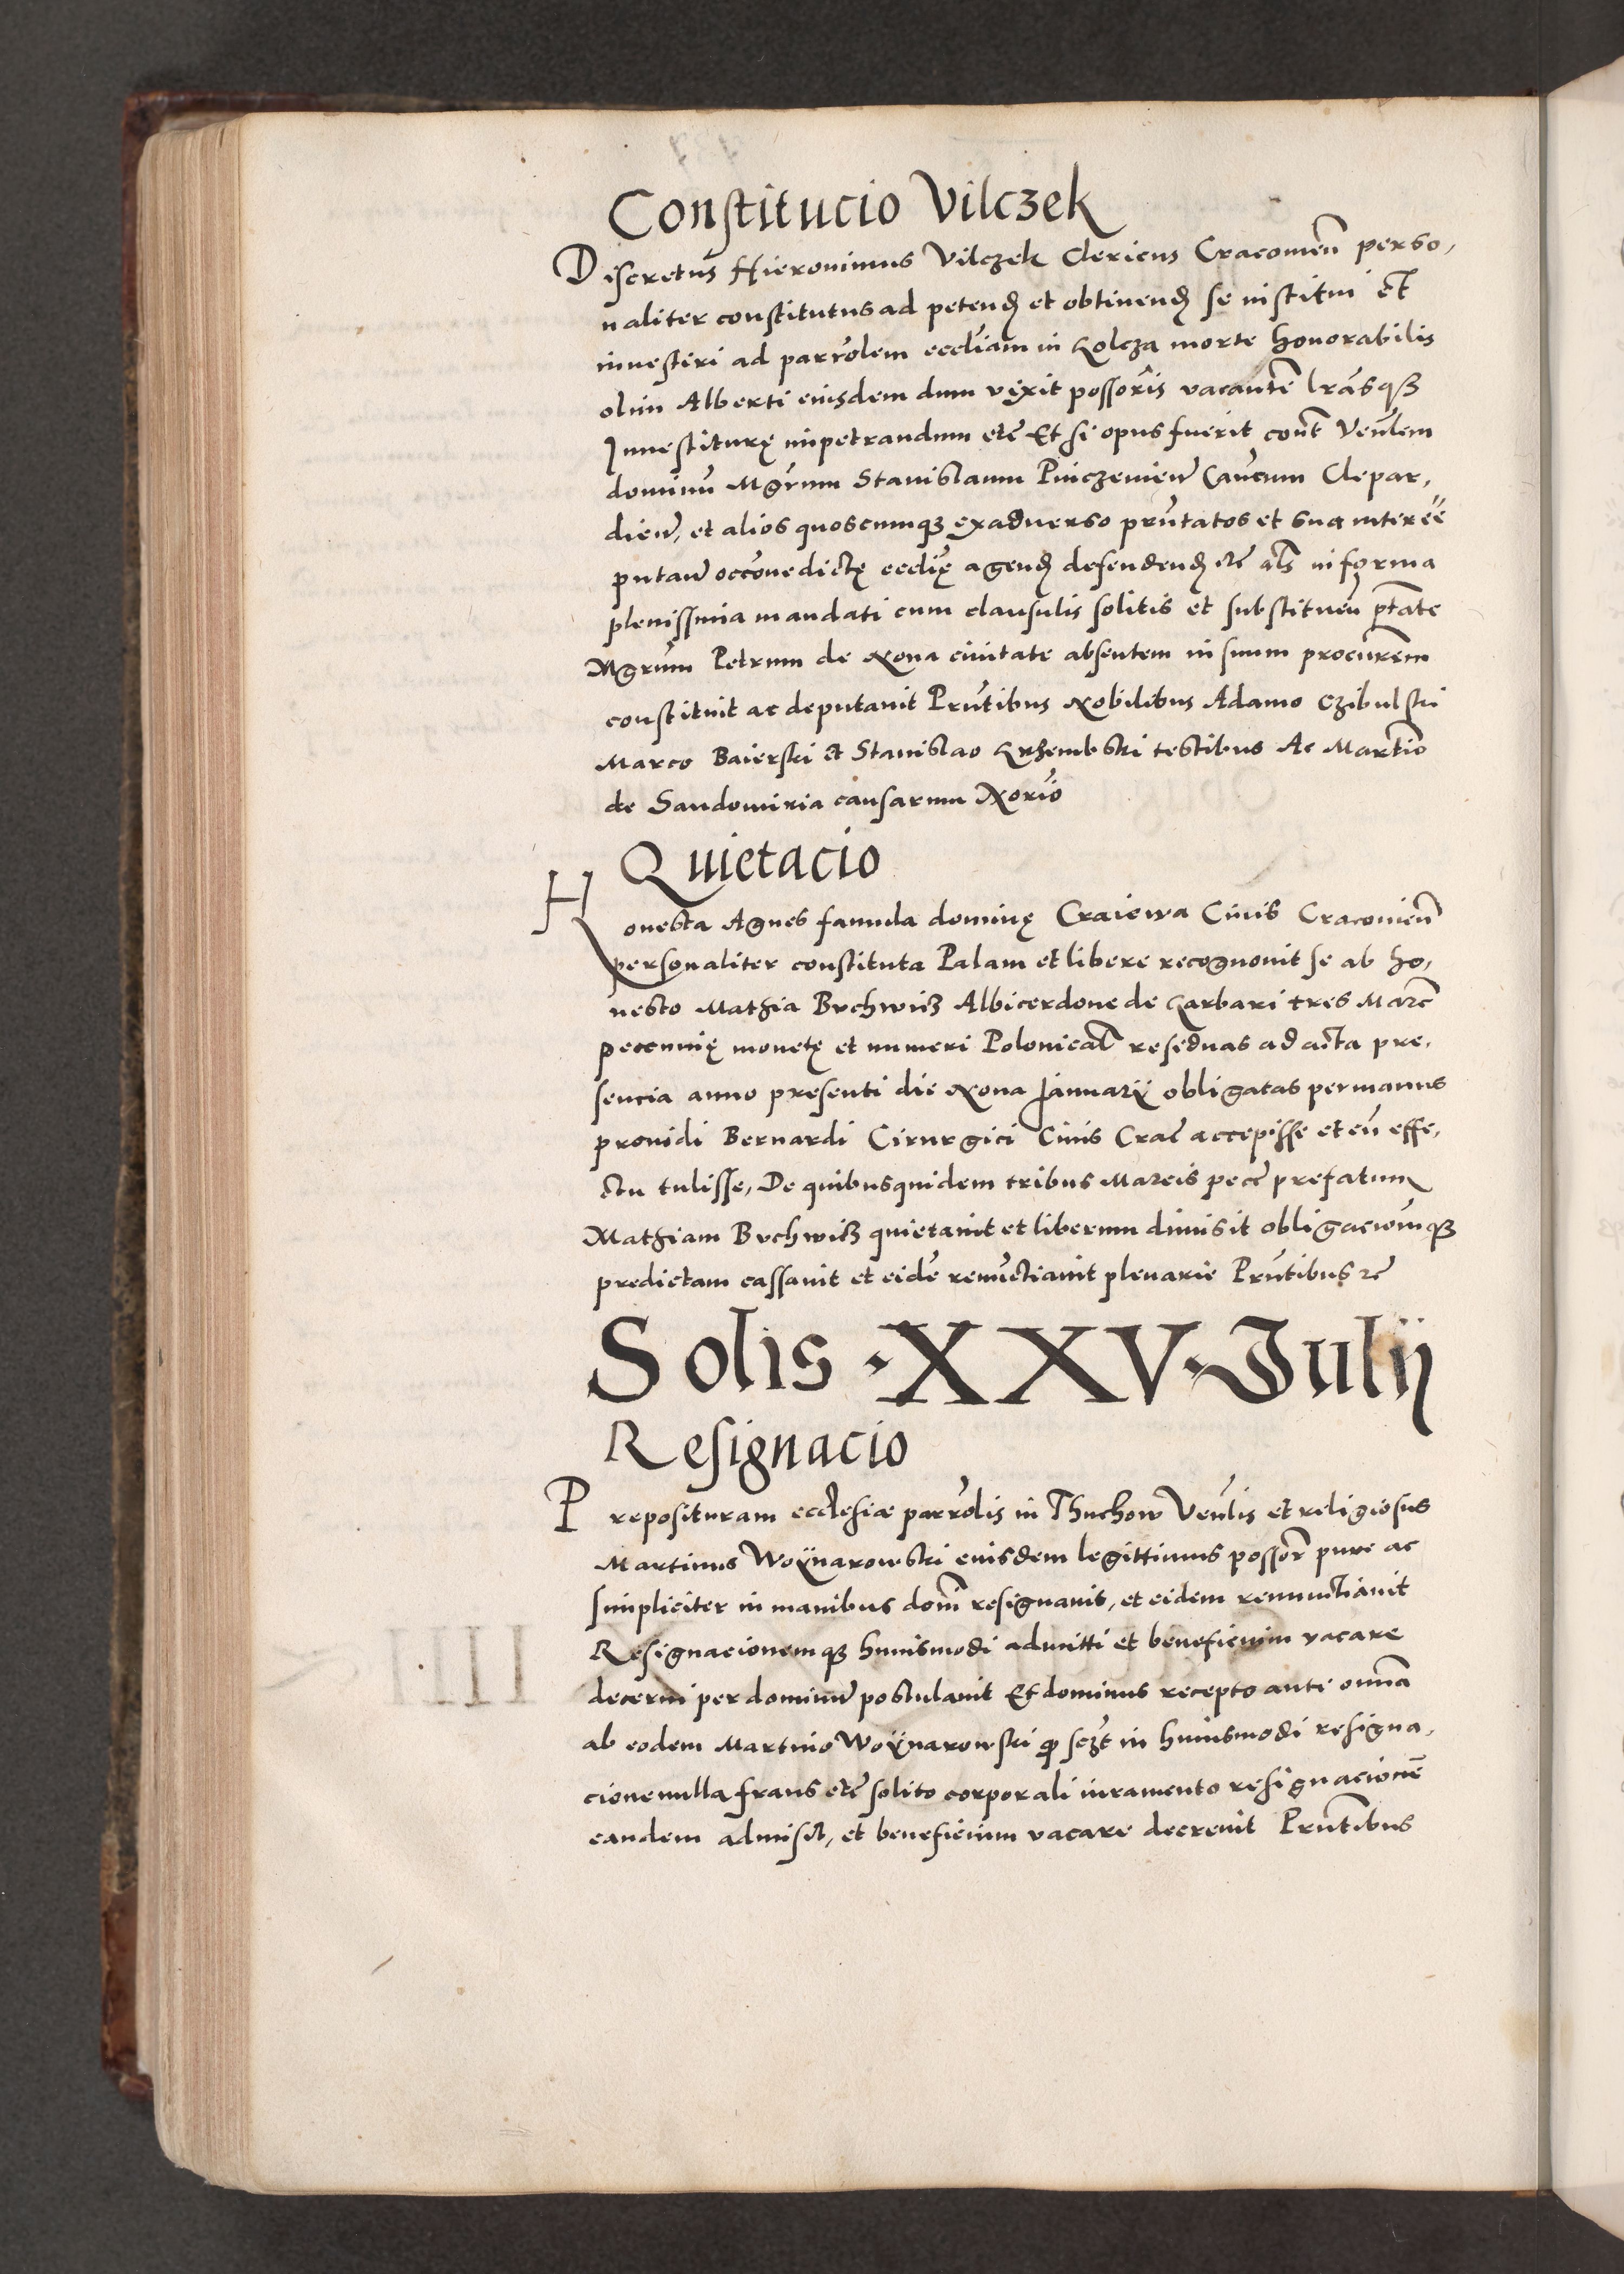 Constitucio Vilczek
Discretus Hieronimus Vilczek Clericus Cracouien̄ perso,
naliter constitutus ad petend et obtinend se institui et
inuestiri ad parrolem eccliam in Kolcza morte honorabilis
olim Alberti eiusdem dum vixit possoris vacantē lrasqꝫ
Inuestiturę impetrandum etc̄ Et si opus fuerit cont Venlem
dominū Mgrum Stanislaum Pinczenien̄ Caucum Clepar,
dien̄, et alios quoscumqꝫ exaduerso prntatos et sua interee
putan̄ occōne dictę ecclię agend defendend etc̄ als in forma
plenissima mandati cum clausulis solitis et substituen̄ ptate
Mgrum Petrum de Noua ciuitate absentem in suum procurem
constituit ac deputauit Prntibus Nobilibus Adamo Czibulski
Marco Baierski et Stanislao Krzembski testibus Ac Martino
de Sandomiria causarum Norio
Quietacio
Honesta Agnes famula dominę Craiewa Ciuis Cracouien̄
personaliter constituta Palam et libere recognouit se ab ho,
nesto Mathia Brchwicz Albicerdone de Garbari tres Marc̄
peccunię monetę et numeri Polonical resednas ad acta pre,
sencia anno presenti die Nona Januarij obligatas per manus
prouidi Bernardi Cirurgici Ciuis Crac̄ accepisse et cū effe,
ctu tulisse, De quibusquidem tribus Marcis pecc̄ prefatum
Mathiam Brchwicz quietauit et liberum dimisit obligacionemqꝫ
predictam cassauit et eidē renūctiauit plenarie Prntibus etc̄
Solis · XXV · Julij
Resignacio
Preposituram ecclesiæ parrolis in Thuchow Venlis et religiosus
Martinus Woÿnarowski eiusdem legittimus possor pure ac
simpliciter in manibus domī resignauit, et eidem renunctiauit
Resignacionemqꝫ huiusmodi admitti et beneficium vacare
decerni per dominū postulauit Et dominus recepto ante omnia
ab eodem Martino Woÿnarowski in huiusmodi resigna,
cione nulla fraus etc̄ solito corporali iuramento resignacionē
eandem admisit, et beneficium vacare decreuit Prntibus